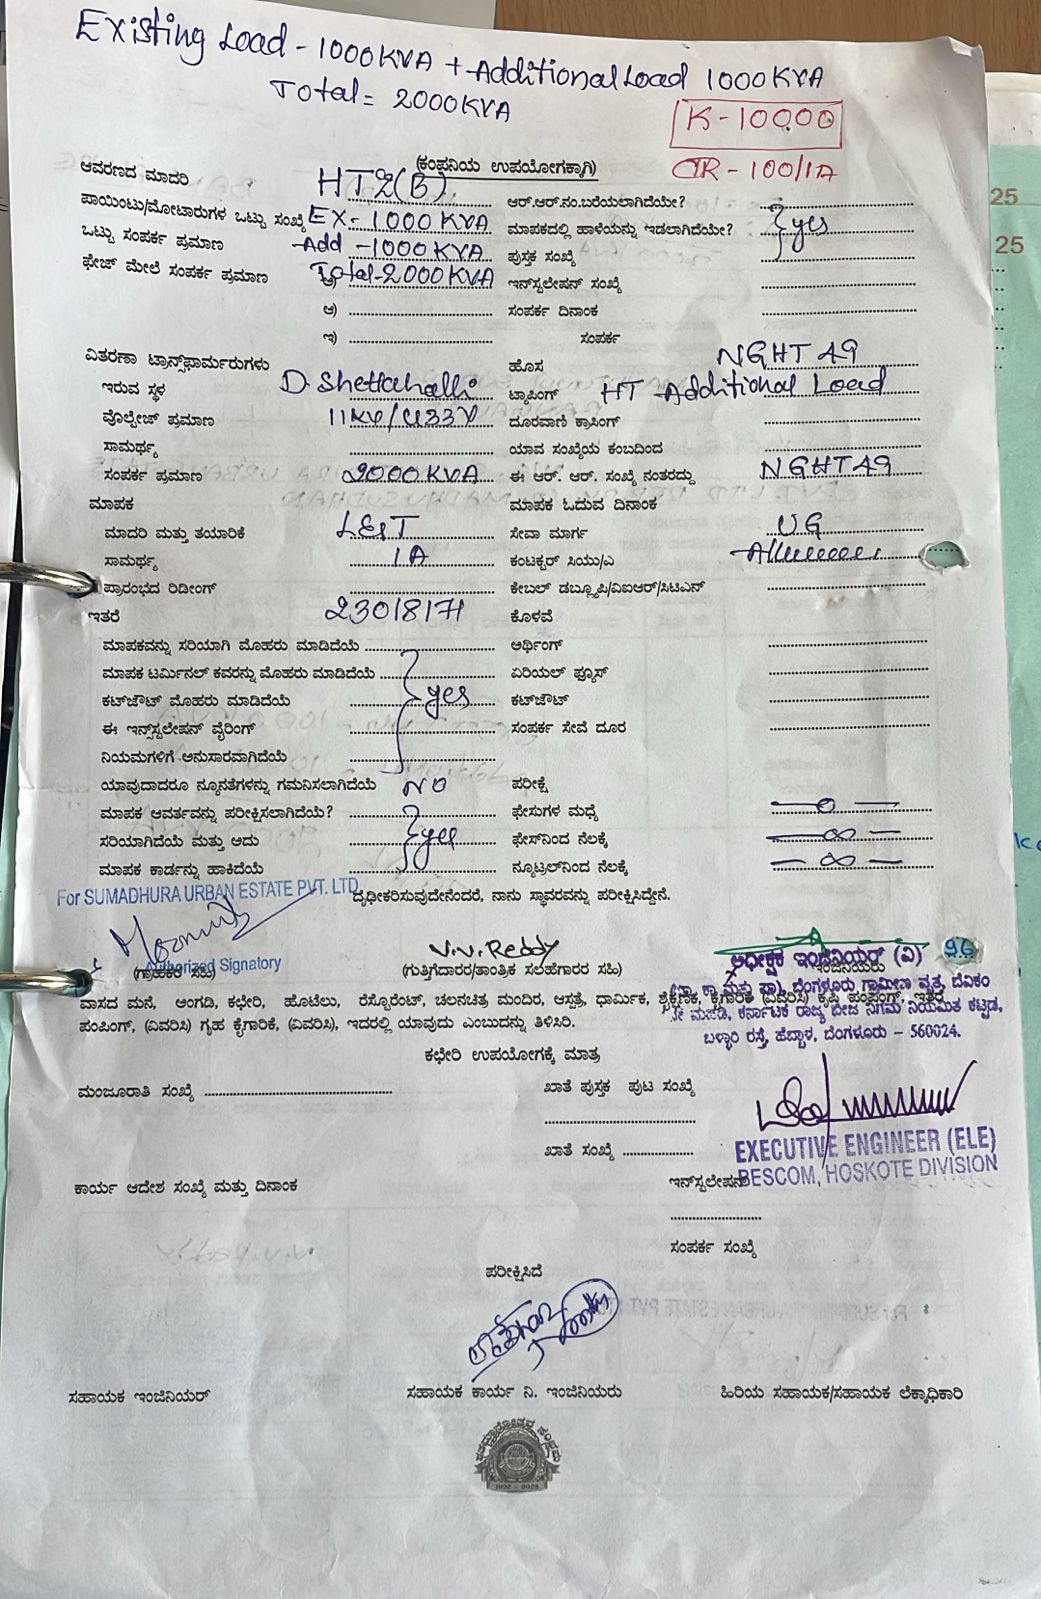 Existing Load - 1000KVA + Additional Load 1000KVA
Total = 2000KVA
K-10000
CTR - 100/1A
25
25
(ಕಂಪನಿಯ ಉಪಯೋಗಕ್ಕಾಗಿ)
ಆವರಣದ ಮಾದರಿ HT2(B) ಆರ್.ಆರ್.ನಂ.ಬರೆಯಲಾಗಿದೆಯೇ?
ಪಾಯಿಂಟು/ಮೋಟಾರುಗಳ ಒಟ್ಟು ಸಂಖ್ಯೆ EX- 1000 KVA ಮಾಪಕದಲ್ಲಿ ಹಾಳೆಯನ್ನು ಇಡಲಾಗಿದೆಯೇ? yes
ಒಟ್ಟು ಸಂಪರ್ಕ ಪ್ರಮಾಣ Add -1000KVA ಪುಸ್ತಕ ಸಂಖ್ಯೆ
ಫೇಜ್ ಮೇಲೆ ಸಂಪರ್ಕ ಪ್ರಮಾಣ Total-2000KVA ಇನ್‌ಸ್ಟಲೇಷನ್ ಸಂಖ್ಯೆ
ಆ) ಸಂಪರ್ಕ ದಿನಾಂಕ
ಇ) ಸಂಪರ್ಕ
ವಿತರಣಾ ಟ್ರಾನ್ಸ್‌ಫಾರ್ಮರುಗಳು ಹೊಸ NGHT 49
ಇರುವ ಸ್ಥಳ D. Shettahalli ಟ್ಯಾಪಿಂಗ್ HT Additional Load
ವೊಲ್ಟೇಜ್ ಪ್ರಮಾಣ 11KV/433V ದೂರವಾಣಿ ಕ್ರಾಸಿಂಗ್
ಸಾಮರ್ಥ್ಯ ಯಾವ ಸಂಖ್ಯೆಯ ಕಂಬದಿಂದ
ಸಂಪರ್ಕ ಪ್ರಮಾಣ 2000KVA ಈ ಆರ್. ಆರ್. ಸಂಖ್ಯೆ ನಂತರದ್ದು NGHT49
ಮಾಪಕ ಮಾಪಕ ಓದುವ ದಿನಾಂಕ
ಮಾದರಿ ಮತ್ತು ತಯಾರಿಕೆ L&T ಸೇವಾ ಮಾರ್ಗ UG
ಸಾಮರ್ಥ್ಯ 1A ಕಂಟಕ್ಟರ್ ಸಿಯು/ಎ
ಪ್ರಾರಂಭದ ರಿಡೀಂಗ್ ಕೇಬಲ್ ಡಬ್ಲ್ಯೂಪಿ/ಎಐಆರ್/ಸಿಟಿಎನ್
ಇತರೆ 23018171 ಕೊಳವೆ
ಮಾಪಕವನ್ನು ಸರಿಯಾಗಿ ಮೊಹರು ಮಾಡಿದೆಯೆ ಅರ್ಥಿಂಗ್
ಮಾಪಕ ಟರ್ಮಿನಲ್ ಕವರನ್ನು ಮೊಹರು ಮಾಡಿದೆಯೆ ಏರಿಯಲ್ ಫ್ಯೂಸ್
ಕಟ್‌ಜೌಟ್ ಮೊಹರು ಮಾಡಿದೆಯೆ yes ಕಟ್‌ಜೌಟ್
ಈ ಇನ್‌ಸ್ಟಲೇಷನ್ ವೈರಿಂಗ್ ಸಂಪರ್ಕ ಸೇವೆ ದೂರ
ನಿಯಮಗಳಿಗೆ ಅನುಸಾರವಾಗಿದೆಯೆ
ಯಾವುದಾದರೂ ನ್ಯೂನತೆಗಳನ್ನು ಗಮನಿಸಲಾಗಿದೆಯೆ NO ಪರೀಕ್ಷೆ
ಮಾಪಕ ಆವರ್ತವನ್ನು ಪರೀಕ್ಷಿಸಲಾಗಿದೆಯೆ? ಫೇಸುಗಳ ಮಧ್ಯೆ —0—
ಸರಿಯಾಗಿದೆಯೆ ಮತ್ತು ಅದು yes ಫೇಸ್‌ನಿಂದ ನೆಲಕ್ಕೆ —∞—
ಮಾಪಕ ಕಾರ್ಡನ್ನು ಹಾಕಿದೆಯೆ ನ್ಯೂಟ್ರಲ್‌ನಿಂದ ನೆಲಕ್ಕೆ —∞—
For SUMADHURA URBAN ESTATE PVT. LTD.
ದೃಢೀಕರಿಸುವುದೇನೆಂದರೆ, ನಾನು ಸ್ಥಾವರವನ್ನು ಪರೀಕ್ಷಿಸಿದ್ದೇನೆ.
V.V. Reddy
96
Authorized Signatory
(ಗ್ರಾಹಕರ ಸಹಿ) (ಗುತ್ತಿಗೆದಾರರ/ತಾಂತ್ರಿಕ ಸಲಹೆಗಾರರ ಸಹಿ) ಇಂಜಿನಿಯರು
ಅಧೀಕ್ಷಕ ಇಂಜಿನಿಯರ್ (ವಿ)
ಬೆಂಗಳೂರು ಗ್ರಾಮೀಣ ವೃತ್ತ, ಬೆವಿಕಂ
ಕರ್ನಾಟಕ ರಾಜ್ಯ ಬೀಜ ನಿಗಮ ನಿಯಮಿತ ಕಟ್ಟಡ,
ಬಳ್ಳಾರಿ ರಸ್ತೆ, ಹೆಬ್ಬಾಳ, ಬೆಂಗಳೂರು – 560024.
ವಾಸದ ಮನೆ, ಅಂಗಡಿ, ಕಛೇರಿ, ಹೊಟೆಲು, ರೆಸ್ಟೊರೆಂಟ್, ಚಲನಚಿತ್ರ ಮಂದಿರ, ಆಸ್ಪತ್ರೆ, ಧಾರ್ಮಿಕ, ಶೈಕ್ಷಣಿಕ, ಕೈಗಾರಿಕೆ (ವಿವರಿಸಿ) ಕೃಷಿ ಪಂಪಿಂಗ್, ಇತರೆ
ಪಂಪಿಂಗ್, (ವಿವರಿಸಿ) ಗೃಹ ಕೈಗಾರಿಕೆ, (ವಿವರಿಸಿ), ಇದರಲ್ಲಿ ಯಾವುದು ಎಂಬುದನ್ನು ತಿಳಿಸಿರಿ.
ಕಛೇರಿ ಉಪಯೋಗಕ್ಕೆ ಮಾತ್ರ
ಮಂಜೂರಾತಿ ಸಂಖ್ಯೆ ಖಾತೆ ಪುಸ್ತಕ ಪುಟ ಸಂಖ್ಯೆ
ಖಾತೆ ಸಂಖ್ಯೆ
EXECUTIVE ENGINEER (ELE)
BESCOM, HOSKOTE DIVISION
ಕಾರ್ಯ ಆದೇಶ ಸಂಖ್ಯೆ ಮತ್ತು ದಿನಾಂಕ ಇನ್‌ಸ್ಟಲೇಷನ್
ಸಂಪರ್ಕ ಸಂಖ್ಯೆ
ಪರೀಕ್ಷಿಸಿದೆ
ಸಹಾಯಕ ಇಂಜಿನಿಯರ್ ಸಹಾಯಕ ಕಾರ್ಯ ನಿ. ಇಂಜಿನಿಯರು ಹಿರಿಯ ಸಹಾಯಕ/ಸಹಾಯಕ ಲೆಕ್ಕಾಧಿಕಾರಿ